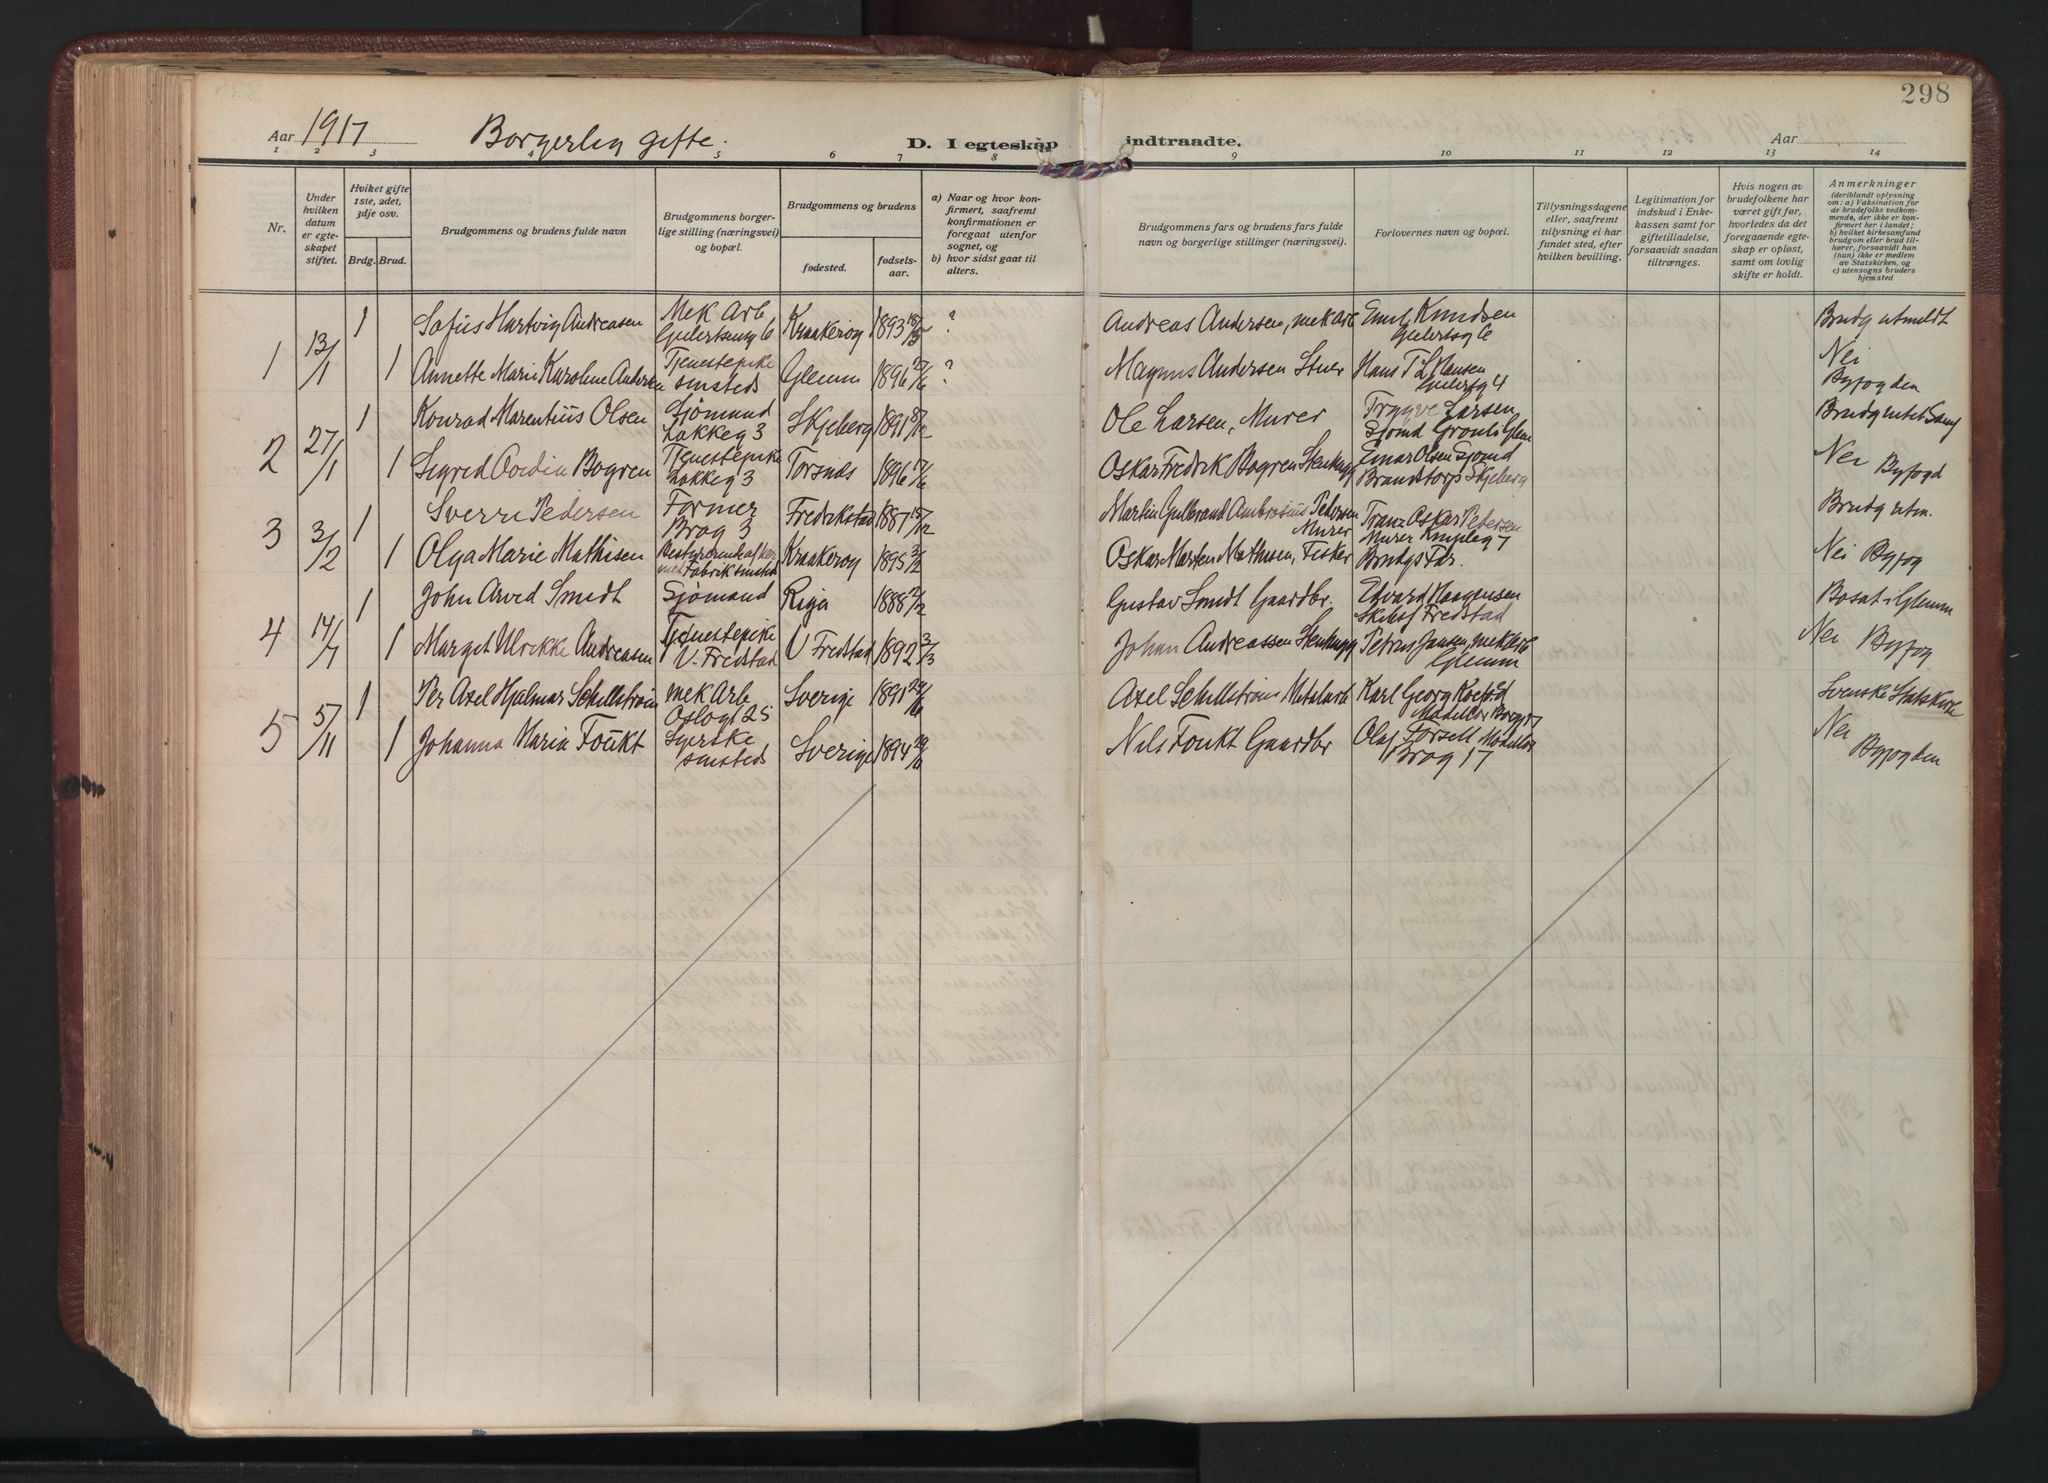 298
Aar 1917 Borgerlig gifte. D. I egteskap indtraadte. Aar
1 2 3 4 5 6 7 8 9 10 11 12 13 14
Nr.
Under hvilken datum er egteskapet stiftet.
Hviket gifte 1ste, 2det, 3dje osv.
Brdg. Brud.
Brudgommens og brudens fulde navn
Brudgommens borgerlige stilling (næringsvei) og bopæl.
Brudgommens og brudens
fødested.
fødselsaar.
a) Naar og hvor konfirmert, saafremt konfirmationen er foregaat utenfor sognet, og
b) hvor sidst gaat til alters.
Brudgommens fars og brudens fars fulde navn og borgerlige stillinger (næringsvei).
Forlovernes navn og bopæl.
Tillysningsdagene eller, saafremt tillysning ei har fundet sted, efter hvilken bevilling.
Legitimation for indskud i Enkekassen samt for giftetilladelse, forsaavidt saadan tiltrænges.
Hvis nogen av brudefolkene har været gift før, hvorledes da det foregaaende egteskap er opløst, samt om lovlig skifte er holdt.
Anmerkninger
(deriblandt oplysning om: a) Vaksination for de brudefolks vedkommende, der ikke er konfirmert her i landet; b) hvilket kirkesamfund brudgom eller brud tilhører, forsaavidt han (hun) ikke er medlem av Statskirken, og c) utensogns bruders hjemsted
1 13/1 1 Sofus Hartvig Andreasen Mek Arb 6 Kraakerøy 1893 18/5 ? Andreas Andersen, mek arb Emil Knudsen 6 Brudg utmeldt
1 Annette Marie Karoline Andersen Tjenestepike smsteds Glemm 1896 27/6 ? Magnus Andersen Stuer Hans T L Hansen 4 Nei Byfogden
2 27/1 1 Konrad Marentius Olsen Sjømand Lakkeg 3 Skjeberg 1891 18/12 Ole Larsen, Murer Trygve Larsen Sjømd Glem Brudg
1 Sigrid Bogren Tjenestepike Lakkeg 3 Torsnes 1896 17/6 Oskar Fredrik Bogren Stenhugg Einar Olsen Sjømd Brandstorp Skjeberg Nei Byfogd
3 3/2 1 Sverre Pedersen Former Brog 3 Fredrikstad 1887 15/12 Martin Gulbrand Ambrosius Pedersen Murer Franz Oskar Petersen Murer 7 Brudg utm.
1 Olga Marie Mathisen Fabrik smsted Kraakerøy 1895 2/2 Oskar Marten Mathisen, Fisker Brudgs Far. Nei Byfog
4 14/7 1 John Arved Smidt Sjømand Riga 1888 2/2 Gustav Smidt Gaardbr. Edvard Haagensen Fredstad Bosat i Glemm
1 Marget Ulrikke Andreasen Tjenestepike V. Fredstad V Fredstad 1892 3/3 Johan Andreassen Stenhugg Petrus Jansen mek Arb Glemm Nei Byfog
5 5/11 1 Per Axel Hjalmar Schillström mek Arb Oslogt 25 Sverige 1891 Axel Schillström Metalarb Karl Georg Svenske Statskirke
1 Johanna Maria Foükt Syerske smsteds Sverige 1894 Nils Foukt Gaardbr Olaf Forsell Modellsn Brog 17 Nei Byfogden